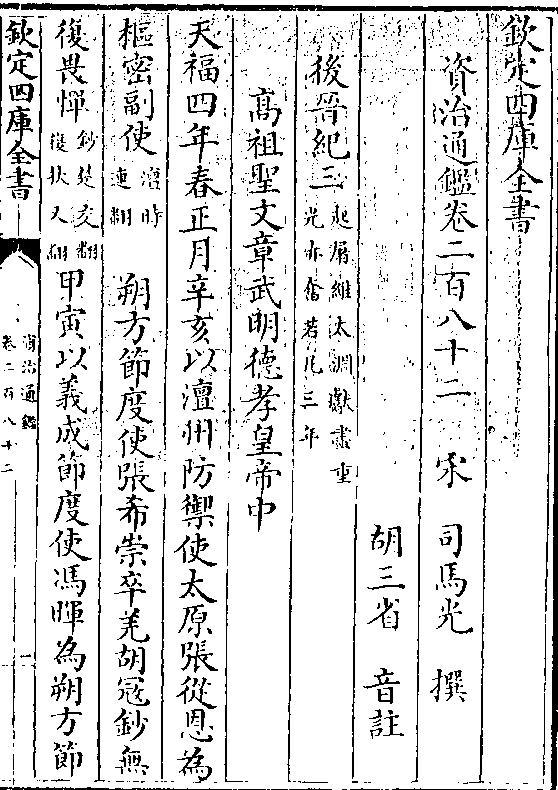 欽定四庫全書
資治通鑑卷二百八十二 宋 司馬光 撰
胡三省 音註
後晉紀三起屠維大淵獻盡重光赤奮若凡三年
高祖聖文章武明德孝皇帝中
天福四年春正月辛亥以澶州防禦使太原張從恩為
樞密副使澶時連翻 朔方節度使張希崇卒羌胡寇鈔無
復畏憚鈔楚交翻復扶又翻甲寅以義成節度使馮暉為朔方節
欽定四庫全書
資治通鑑
卷二百八十二
一